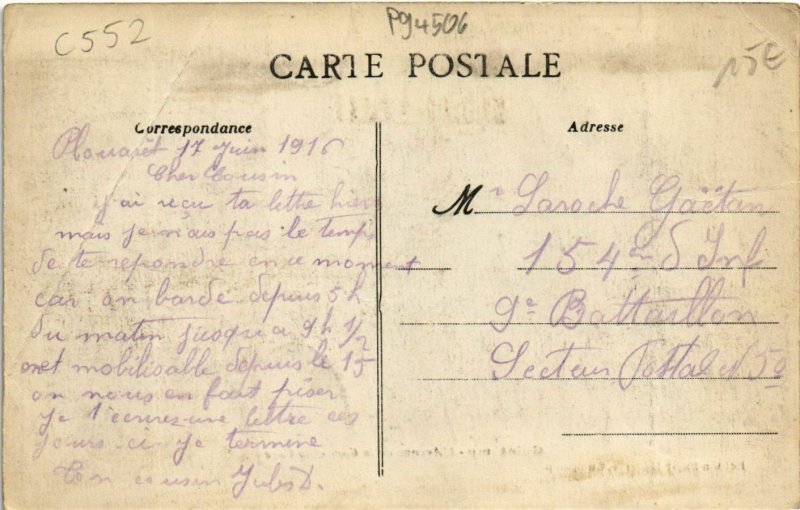 C552
P94506
15€
CARTE POSTALE
Correspondance
Adresse
Plouarët 17 juin 1916
Cher Cousin
j'ai reçu ta lettre hier
mais je n'ais pas le temps
de te repondre en ce moment
car on barde depuis 5h
du matin jusqu'a 9h 1/2
on et mobilisable depuis le 15
on nous en fait piser
je t'ecrires une lettre ces
jours ci je termine
Ton cousin Jules D.
Mr Laroche Gaëtan
154e d Inf
9e Battaillon
Secteur Postal N 50